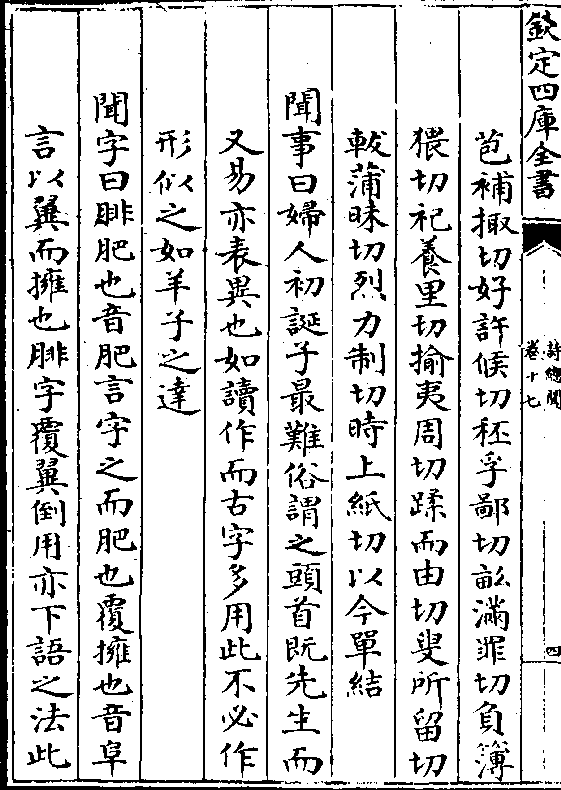 欽定四庫全書
詩總聞
卷十七
四
苞補掫切好許候切秠孚鄙切畝滿罪切負簿
猥切祀養里切揄夷周切蹂而由切叟所留切
軷蒲昧切烈力制切時上紙切以今單結
聞事曰婦人初誕子最難俗謂之頭首既先生而
又易亦表異也如讀作而古字多用此不必作
形似之如羊子之達
聞字曰腓肥也音肥言字之而肥也覆擁也音阜
言以翼而擁也腓字覆翼倒用亦下語之法此